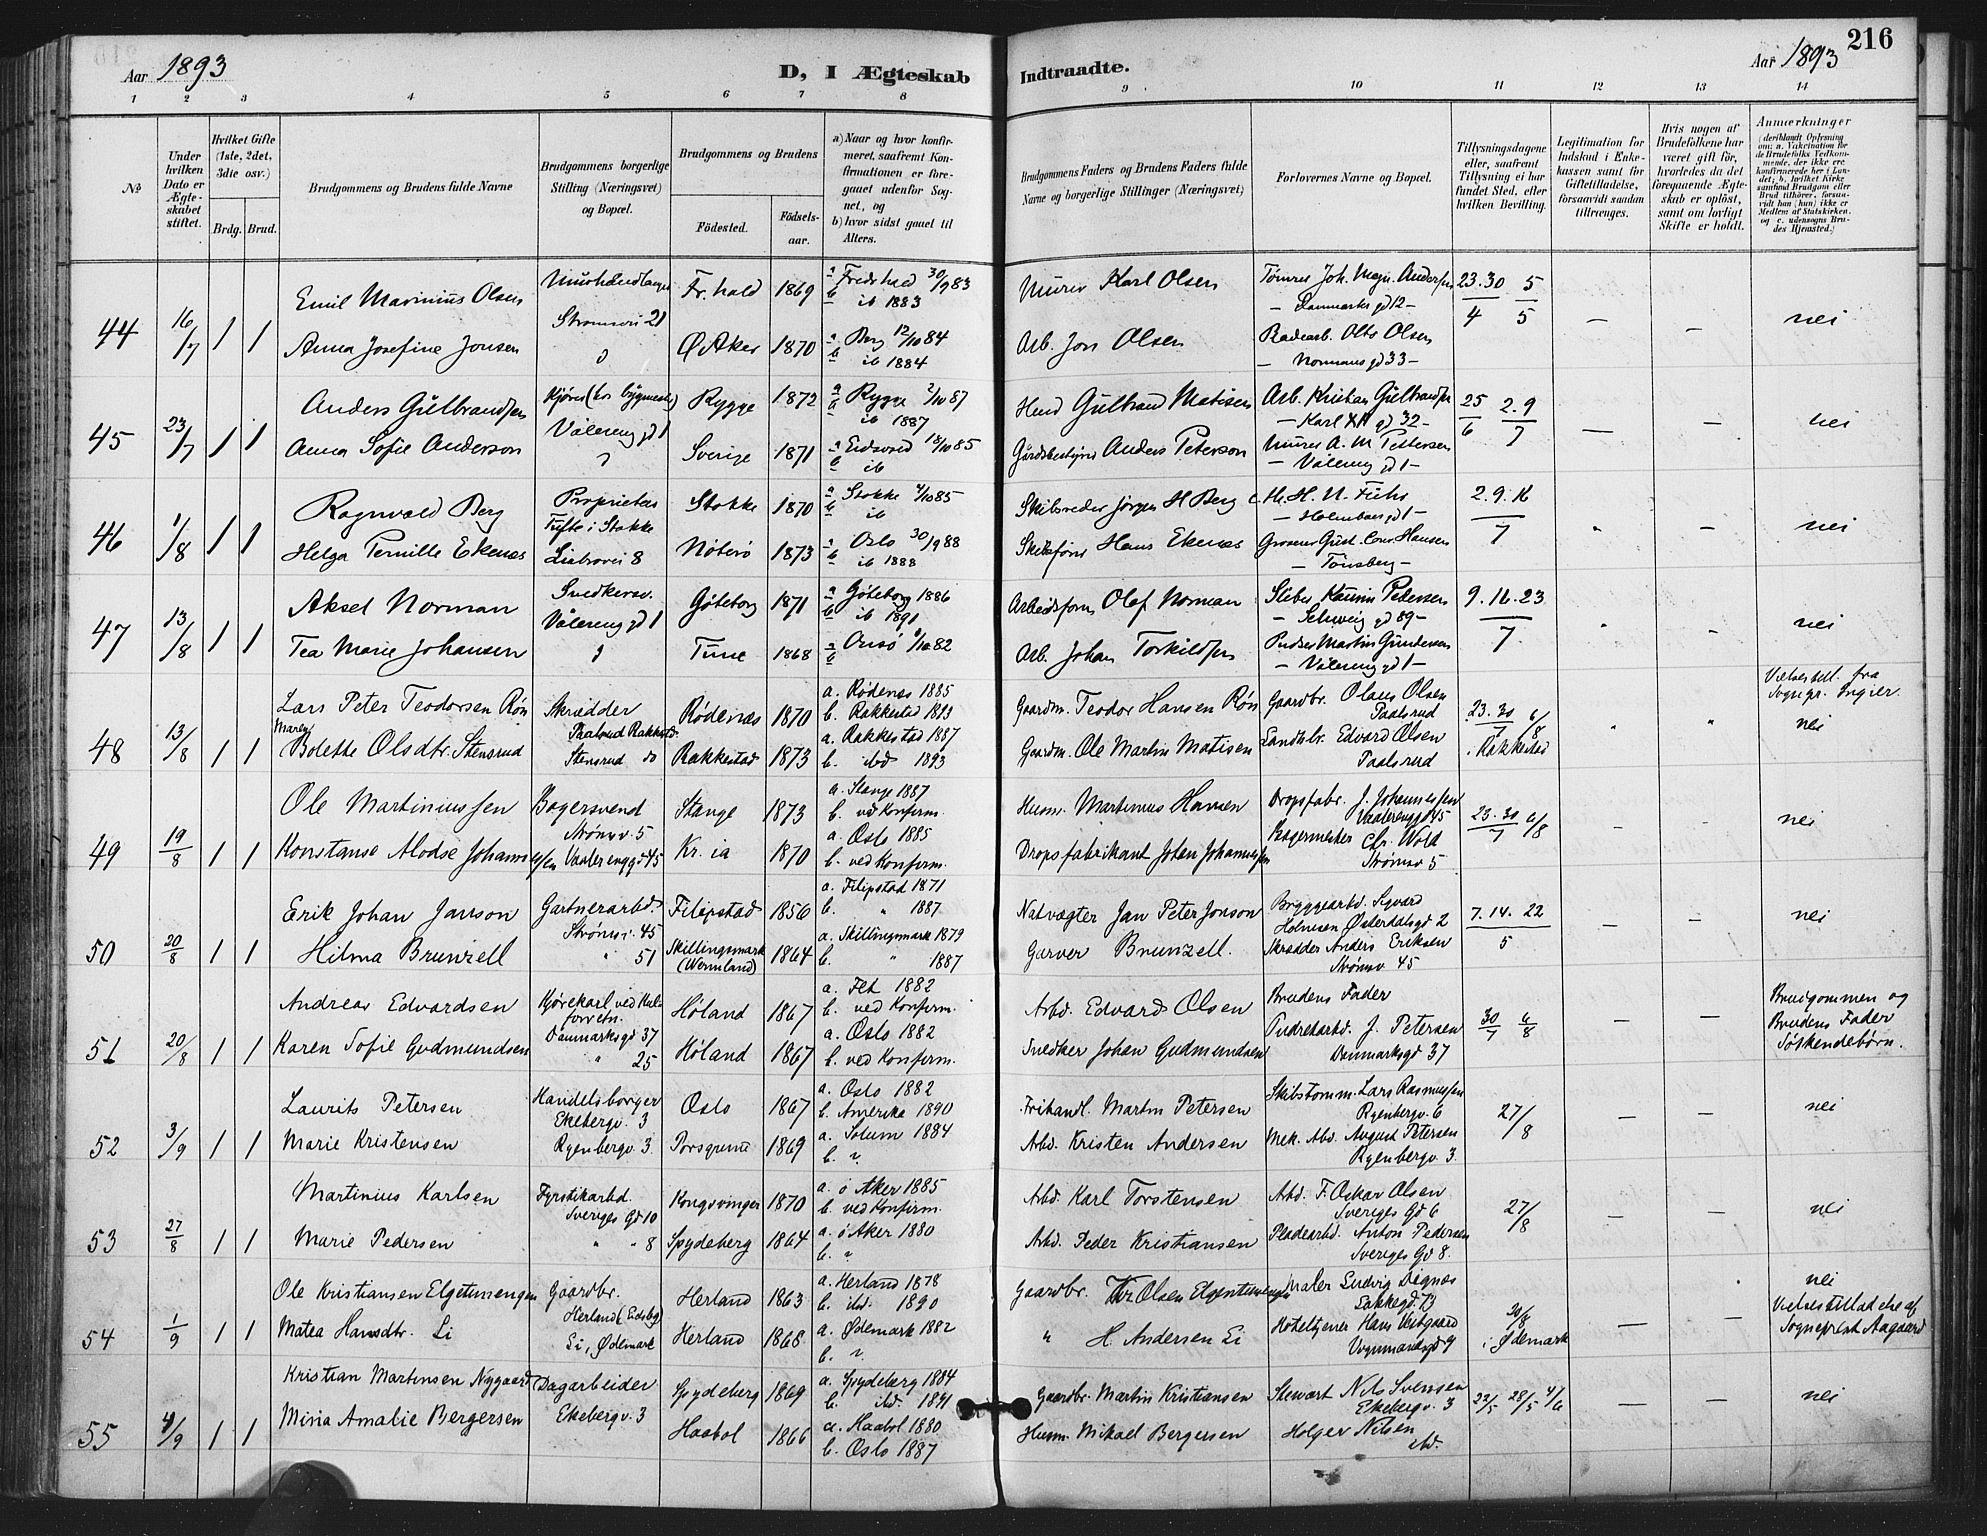 216
Aar 1893
D, I Ægteskab
Indtraadte.
Aar 1893
1 2 3 4 5 6 7 8 9 10 11 12 13 14
№
Under hvilken Dato er Ægteskabet stiftet.
Hvilket Gifte (1ste, 2det, 3die osv.)
Brdg. Brud.
Brudgommens og Brudens fulde Navne
Brudgommens borgerlige Stilling (Næringsvei) og Bopæl.
Brudgommens og Brudens
Fødested.
Fødselsaar.
a) Naar og hvor konfirmeret, saafremt Konfirmationen er foregaaet udenfor Sognet, og
b) hvor sidst gaaet til Alters.
Brudgommens Faders og Brudens Faders fulde Navne og borgerlige Stillinger (Næringsvei)
Forlovernes Navne og Bopæl.
Tillysningsdagene eller, saafremt Tillysning ei har fundet Sted, efter hvilken Bevilling.
Legitimation for Indskud i Enkekassen samt for Giftetilladelse, forsaavidt saadan tiltrænges.
Hvis nogen af Brudefolkene har været gift før, hvorledes da det foregaaende Ægteskab er opløst, samt om lovligt Skifte er holdt.
Anmærkninger
(deriblandt Oplysning om: a. Vaccination for de Brudefolks Vedkommende, der ikke ere konfirmerede her i Landet; b. hvilket Kirkesamfund Brudgom eller Brud tilhører, forsaavidt han (hun) ikke er Medlem af Statskirken. og c. udensogns Brudes Hjemsted.)
44 16/7 1 1 Emil Marinius Olsen Fr.hald 1869 a Fredshald 30/9 83 Murer Karl Olsen Tømrer Joh. Magn. Andersen 23.30/4 5/5 — — nei
Strømsvei 21 b ib 1883 — Danmarks gd 12 —
Anna Josefine Jonsen Ø. Aker 1870 a Berg 12/10 84 Arb. Jon Olsen Olsen
b ib 1884 — Normans gd 33 —
45 23/7 1 1 Anders Gulbrandsen Kjører (hos bygmester) Rygge 1872 a Rygge 2/10 87 Gulbrand Matisen Arb. Kristian Gulbrandsen 25/6 2.9/7 — — nei
Vålereng gd 1 b ib 1887 — Karl XII gd 32 —
Anna Sofie Anderson Sverige 1871 a Eidsvold 18/10 85 Gårdsbestyrer Anders Peterson Murer A. M. Pettersen
b ib — Vålereng gd 1 —
46 1/8 1 1 Ragnvald Berg Proprietær Stokke 1870 a Stokke 4/10 85 Skibsreder Jørgen H Berg H. N. Fuhr 2.9.16/7 nei
Tufte i Stokke b ib — Holmboes gd 1 —
Helga Pernille Ekenæs Liabrovei 8 Nøterø 1873 a Oslo 30/9 88 Skibsfører Hans Ekenæs Grosserer Gust. Conr. Hansen
b ib 1888 — Tønsberg —
47 13/8 1 1 Aksel Norman Snedkersv. Gøteborg 1871 a Gøteborg 1886 Arbeidsform. Olaf Norman Pedersen 9.16.23/7 nei
Vålereng gd 1 b ib 1891 — Schweig gd 89 —
Tea Marie Johansen Tune 1868 a Onsø 82 Arb. Johan Torkildsen Pudser Martin Gundersen
— Vålereng gd 1 —
48 13/8 1 1 Lars Peter Teodorsen Røn Skrædder Rødenæs 1870 a. Rødenæs 1885 Gaardm. Teodor Hansen Røn Gaardbr. Olaus Olsen 23.30/7 6/8 Vielsestill. fra Sognepr. Ingier
Paalsrud Rakkestad b. Rakkestad 1893 Paalsrud nei
Maren Bolette Olsdtr. Stensrud Stensrud do Rakkestad 1873 a. Rakkestad 1887 Gaardm. Ole Martin Matisen Landhbr. Edvard Olsen i Rakkestad
b. ibd 1893 Paalsrud
49 19/8 1 1 Ole Martiniussen Bagersvend Stange 1873 a. Stange 1887 Husm. Martinius Hansen Dropsfabr. J. Johannessen 23.30/7 6/8 — — nei
Strømsv. 5 b. ved Konfirm. Vaalerenggd 45
Konstanse Alodse Johannessen Vaalerenggd 45 Kr.ia 1870 a. Oslo 1885 Dropsfabrikant Johan Johannessen Bagermester Chr. Wold
b. ved Konfirm. Strømsv 5
50 20/8 1 1 Erik Johan Janson Gartnerarbd. Filipstad 1856 a. Filipstad 1871 Natvægter Jan Peter Jonson Bryggearbd. Sigvard 7.14.22/5 — — nei
Strømsv. 45 b. " 1887 Holmsen Østerdalsgd 2
Hilma Brunzell " 51 Skillingsmark (Wermland) 1864 a. Skillingsmark 1879 Garver Brunzell. Skrædder Anders Eriksen
b. " 1887 Strømsv 45
51 20/8 1 1 Andreas Edvardsen Kjørekarl ved Kulforretn. Høland 1867 a. Fet 1882 Arbd. Edvard Olsen Brudens Fader 30/7 6/8 — — Brudgommen og Brudens Fader Søskendebørn.
Danmarksgd 37 b. ved Konfirm.
Karen Sofie Gudmundsen " 25 Høland 1867 a. Oslo 1882 Snedker Johan Gudmundsen Pudretarbd. J. Petersen
b. ved Konfirm. Danmarksgd 37
52 3/9 1 1 Laurits Petersen Handelsborger Oslo 1867 a. Oslo 1882 Frihandl. Martin Petersen Skibstømm. Lars Rasmussen 27/8 — — nei
Ekebergv. 3 b. Amerika 1890 Ryenbergv. 6
Marie Kristensen Ryenbergv. 3. Porsgrund 1869 a. Solum 1884 Arbd. Kristen Andersen Mek. Arb. August Petersen
b. ?. Ryenbergv. 3.
53 27/8 1 1 Martinius Karlsen Fyrstikarbd. Kongsvinger 1870 a. Ø Aker 1885 Arbd. Karl Torstensen Arbd. F. Oskar Olsen 27/8 — — nei
Sveriges Gd 10 b. ved Konfirm. Sveriges Gd 6
Marie Pedersen " " 8 Spydeberg 1864 a. Ø Aker 1880 Arbd. Peder Kristiansen Pladearbd. Anton Pedersen
b. " Sveriges Gd 8.
54 1/9 1 1 Ole Kristiansen Gaardbr. Herland 1863 a. Herland 1878 Gaardbr. Olsen Maler Ludvig Dignæs 20/8 nei
Herland (Eidsbg) b. ibd. 1890 Lakkegd. 73 Vielsestilladelse af Sogneprest Aagaard
Matea Hansdtr. Li Li, Ødemark Herland 1868 a. Ødemark 1882 " H. Andersen Li Hoteltjener Hans i Ødemark
b. ?. Vognmandsgd 9
55 4/9 1 1 Kristian Martinsen Nygaard Dagarbeider Spydeberg 1869 a. Spydeberg 1884 Gaardbr. Martin Kristiansen Stewart Nils Svensen 22/5 28/5 4/6 — — nei
Ekebergv. 3 b. ibd. 1891 Ekebergv. 3
Mina Amalie Bergersen Haabøl 1866 a. Haabøl 1880 Husm. Mikael Bergersen Holger Nilsen
b. Oslo 1887 ibd.